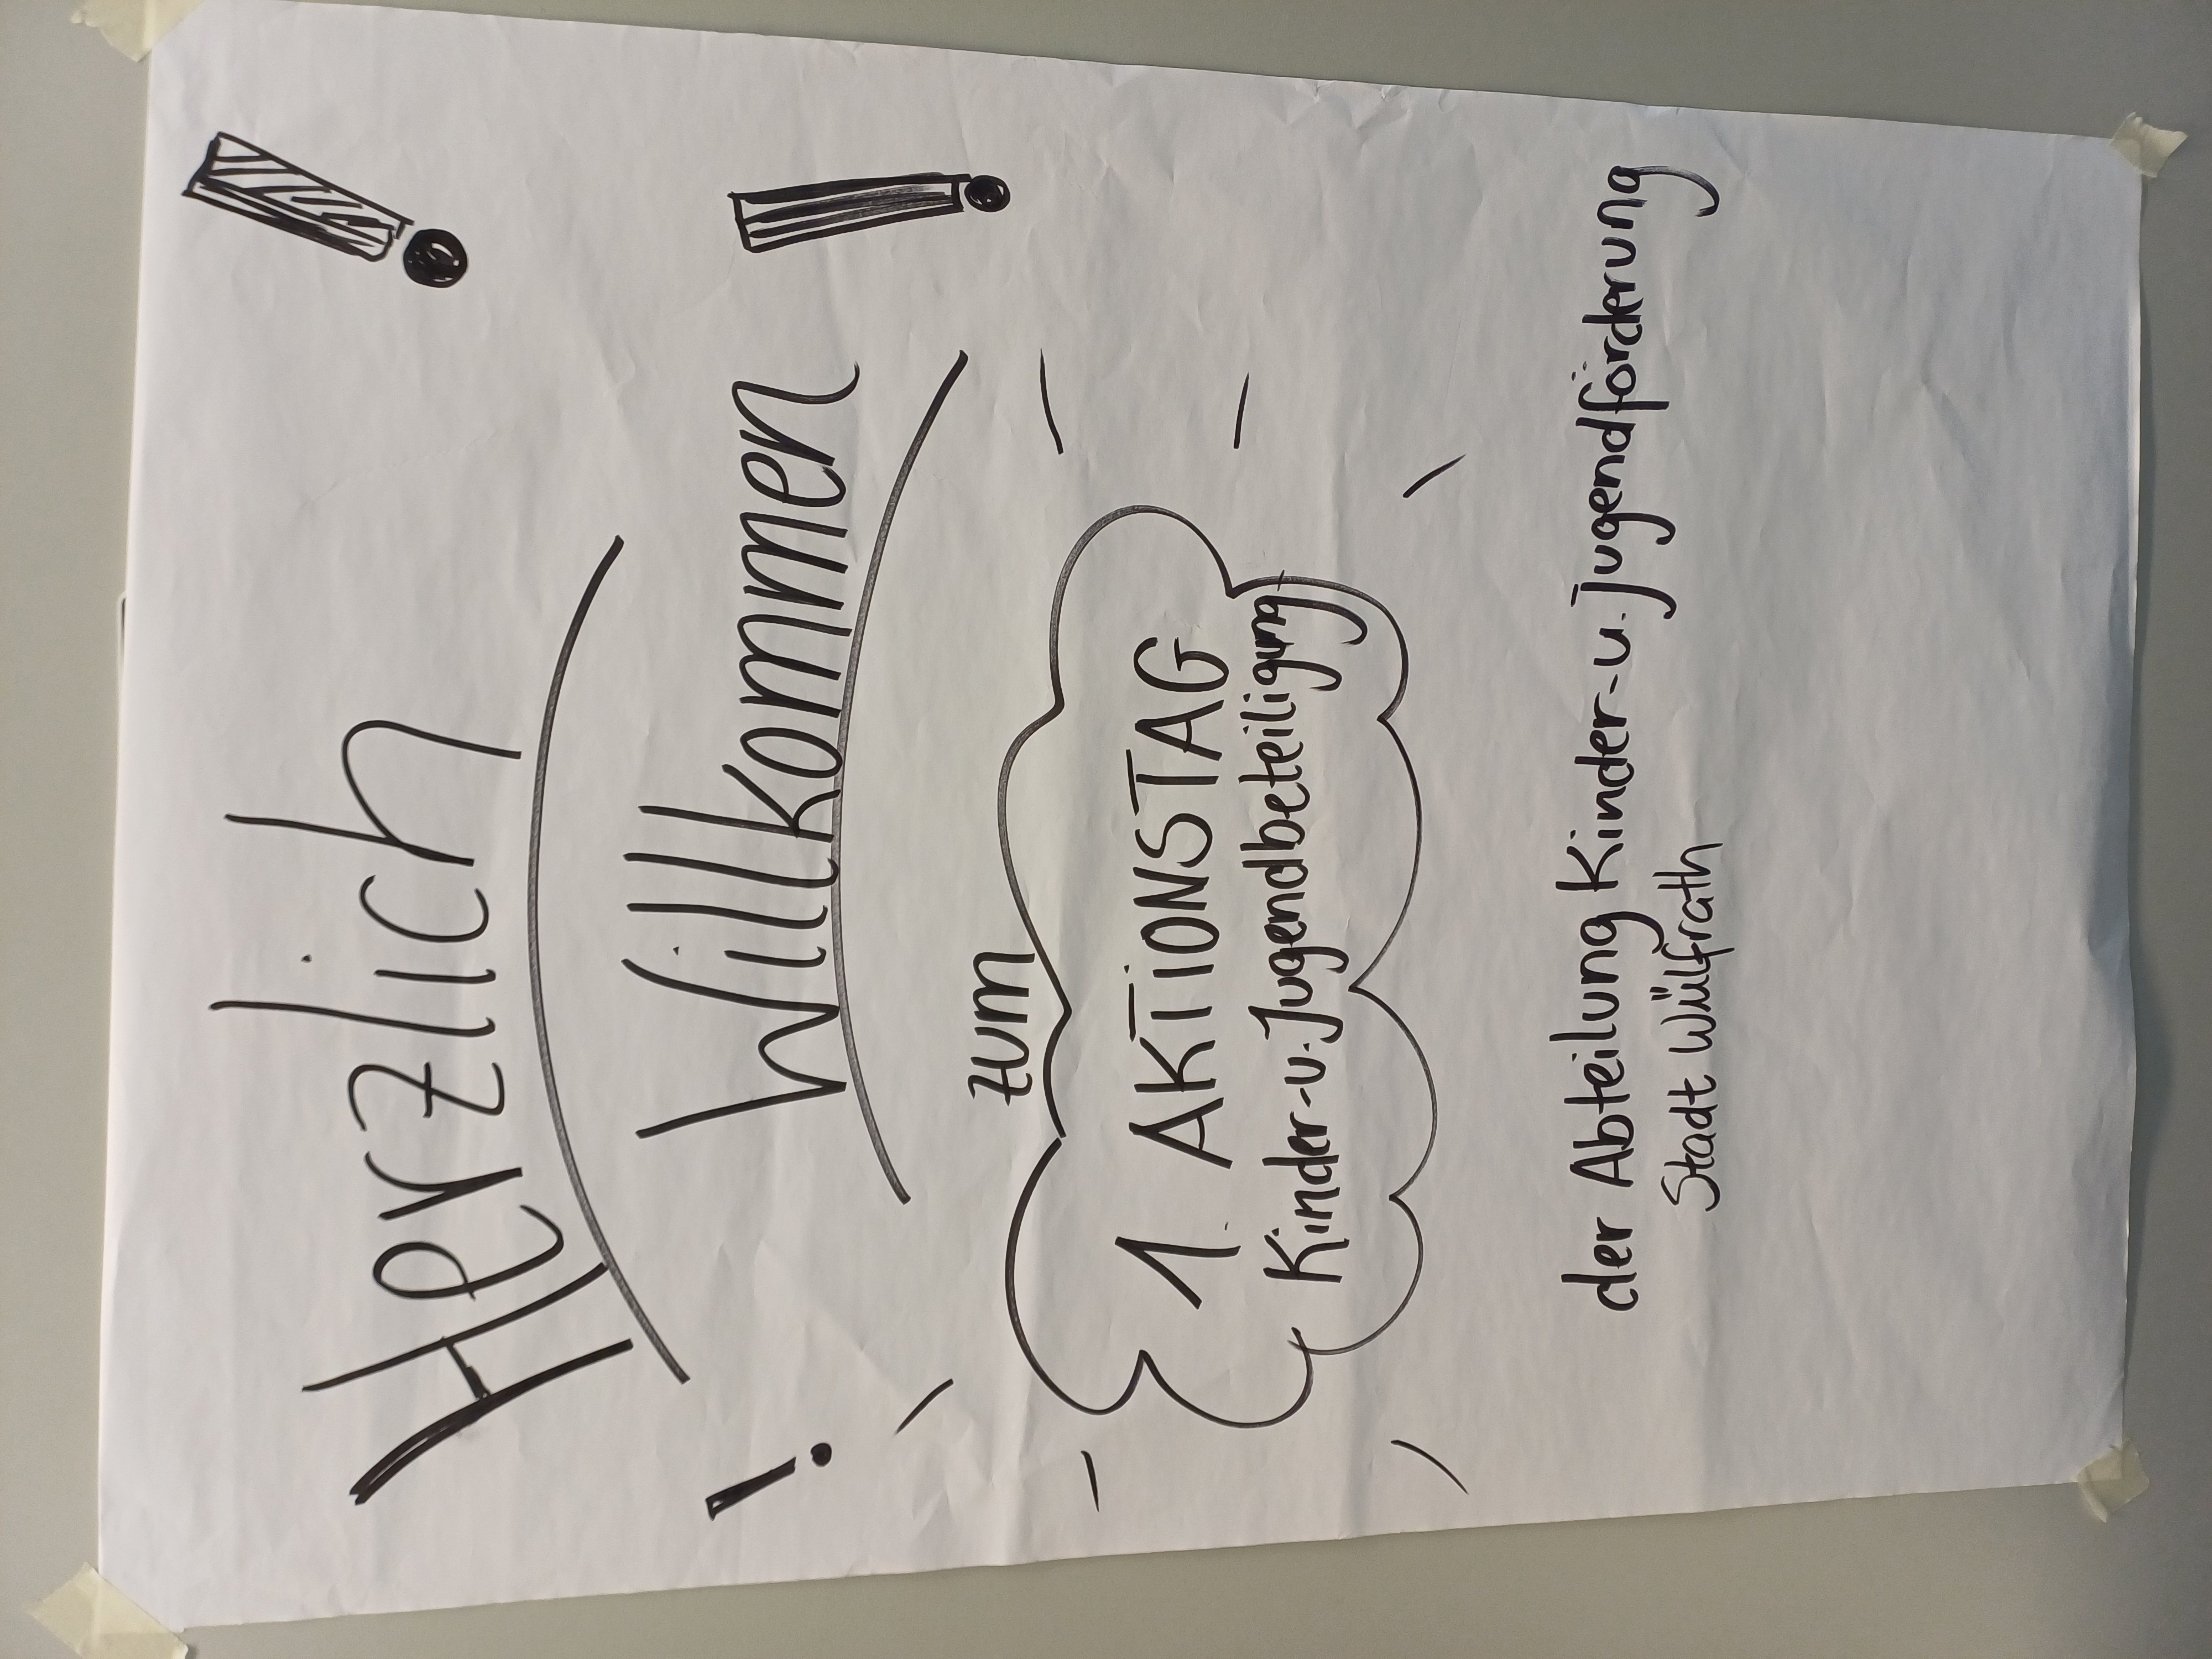 Herzlich !
! Willkommen !
zum
1. AKTIONSTAG
Kinder-u. Jugendbeteiligung
der Abteilung Kinder-u. Jugendförderung
Stadt Wülfrath